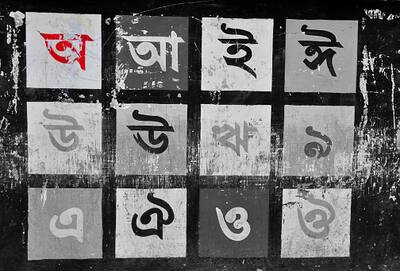 অ আ ই ঈ
উ ঊ ঋ ৯
এ ঐ ও ঔ